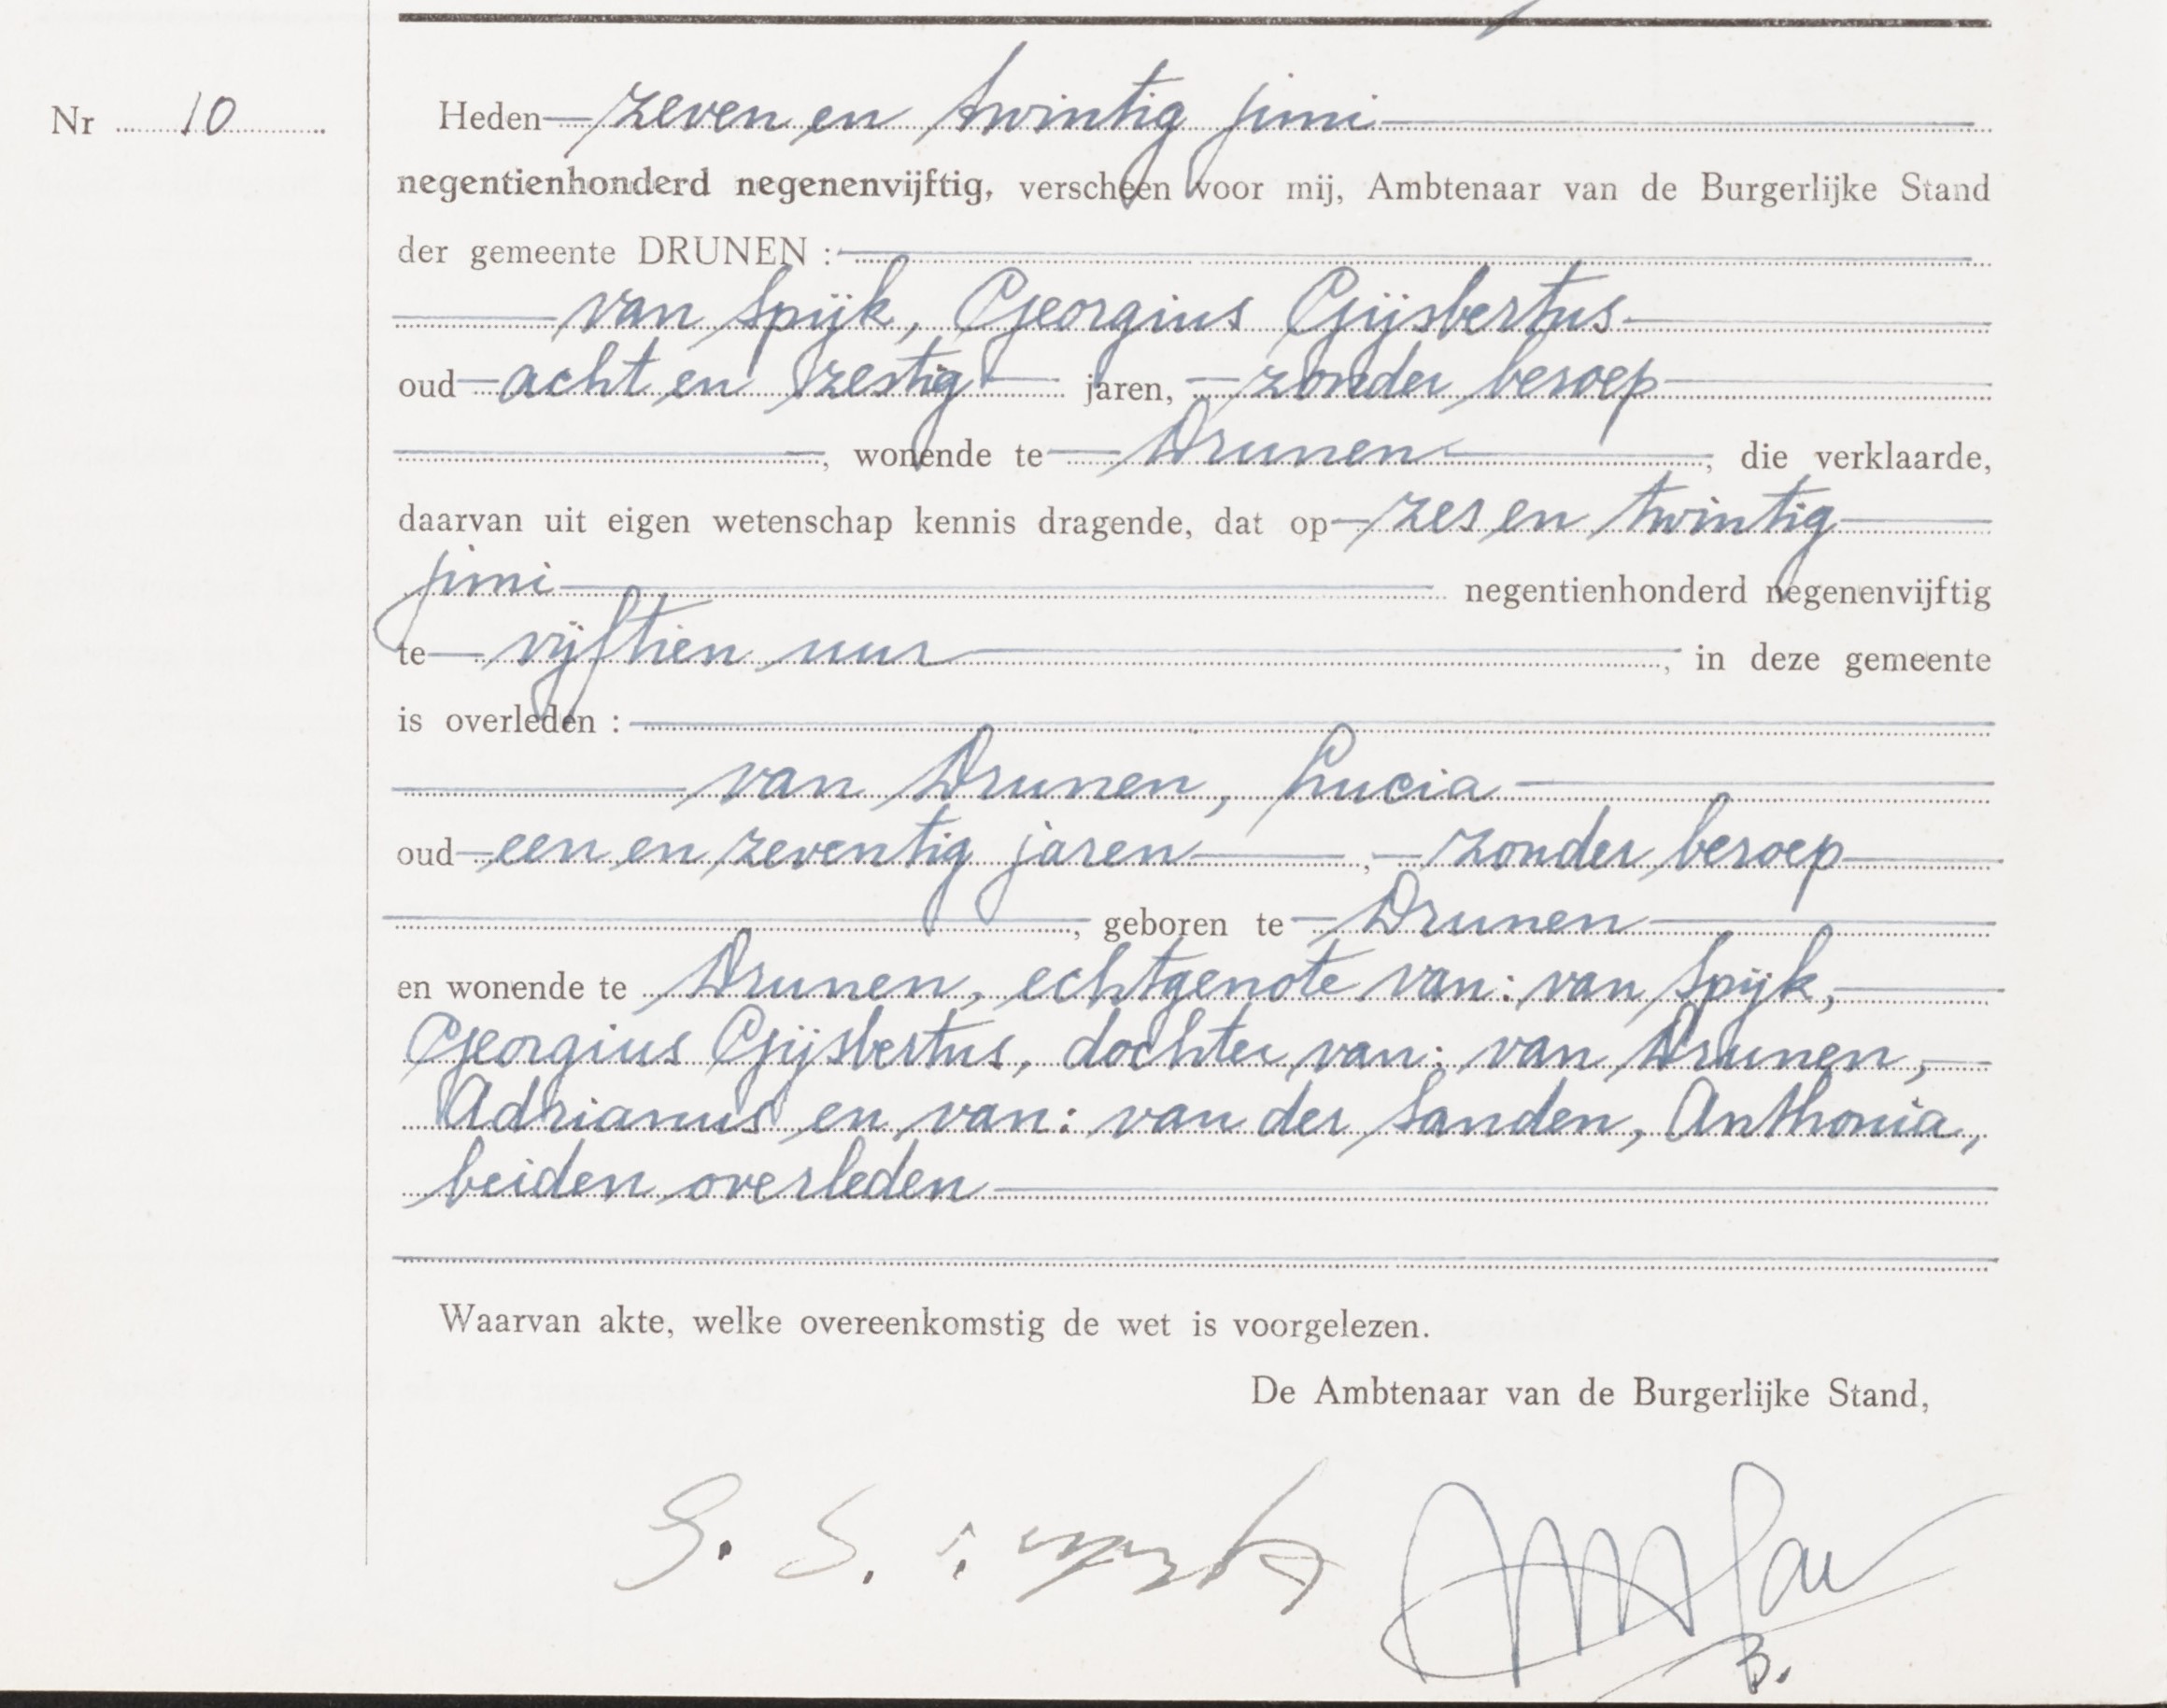 Nr 10
Heden zeven en twintig juni
negentienhonderd negenenvijftig, verscheen voor mij, Ambtenaar van de Burgerlijke Stand
der gemeente DRUNEN :
van Spijk, Georgius Gijsbertus
oud acht en zestig jaren, zonder beroep
, wonende te Drunen, die verklaarde,
daarvan uit eigen wetenschap kennis dragende, dat op zes en twintig
juni negentienhonderd negenenvijftig
te vijftien uur, in deze gemeente
is overleden :
van Drunen, Lucia
oud een en zeventig jaren, zonder beroep
, geboren te Drunen
en wonende te Drunen, echtgenote van: van Spijk,
Georgius Gijsbertus, dochter van: van Drunen,
Adrianus en van: van der Sanden, Anthonia,
beiden overleden
Waarvan akte, welke overeenkomstig de wet is voorgelezen.
De Ambtenaar van de Burgerlijke Stand,